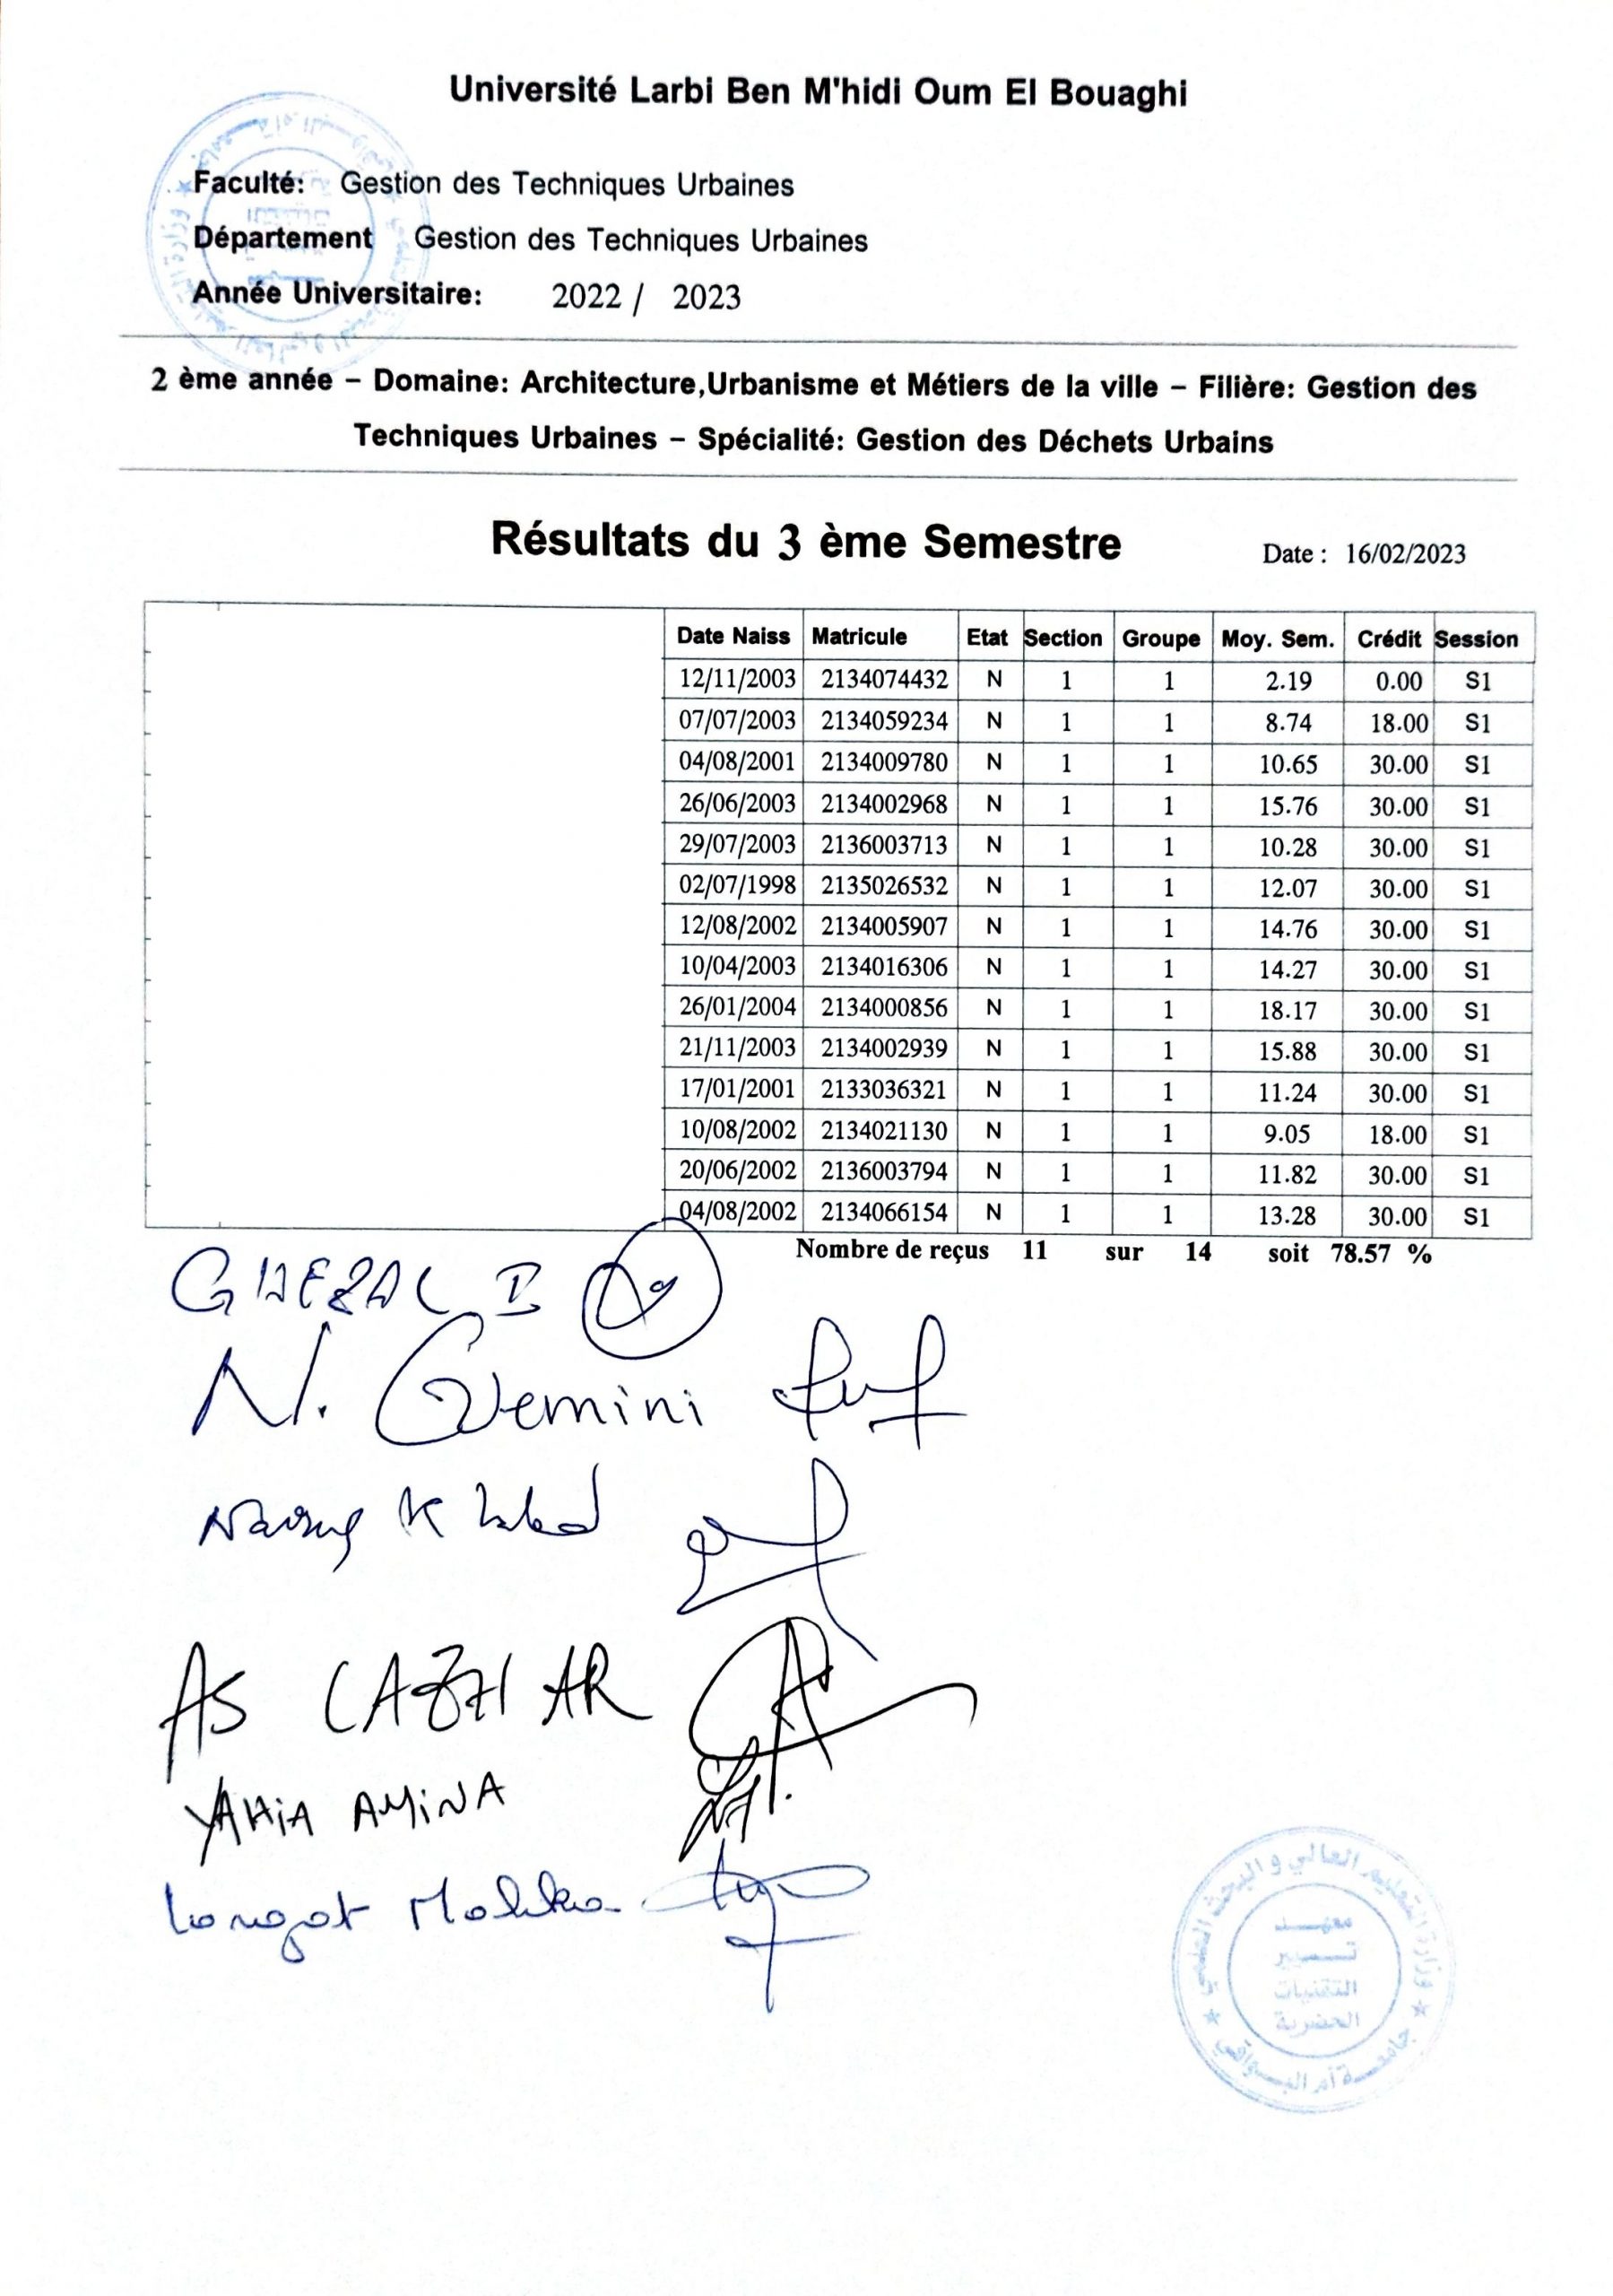 Université Larbi Ben M'hidi Oum El Bouaghi
Faculté: Gestion des Techniques Urbaines
Département Gestion des Techniques Urbaines
Année Universitaire: 2022 / 2023
2 ème année – Domaine: Architecture,Urbanisme et Métiers de la ville – Filière: Gestion des
Techniques Urbaines – Spécialité: Gestion des Déchets Urbains
Résultats du 3 ème Semestre
Date : 16/02/2023
Date Naiss Matricule Etat Section Groupe Moy. Sem. Crédit Session
12/11/2003 2134074432 N 1 1 2.19 0.00 S1
07/07/2003 2134059234 N 1 1 8.74 18.00 S1
04/08/2001 2134009780 N 1 1 10.65 30.00 S1
26/06/2003 2134002968 N 1 1 15.76 30.00 S1
29/07/2003 2136003713 N 1 1 10.28 30.00 S1
02/07/1998 2135026532 N 1 1 12.07 30.00 S1
12/08/2002 2134005907 N 1 1 14.76 30.00 S1
10/04/2003 2134016306 N 1 1 14.27 30.00 S1
26/01/2004 2134000856 N 1 1 18.17 30.00 S1
21/11/2003 2134002939 N 1 1 15.88 30.00 S1
17/01/2001 2133036321 N 1 1 11.24 30.00 S1
10/08/2002 2134021130 N 1 1 9.05 18.00 S1
20/06/2002 2136003794 N 1 1 11.82 30.00 S1
04/08/2002 2134066154 N 1 1 13.28 30.00 S1
Nombre de reçus 11 sur 14 soit 78.57 %
GHEZAL I
N.
AS LAZHAR
YAHIA AMINA
وزارة التعليم العالي و البحث العلمي
معهد
تسيير
التقنيات
الحضرية
جامعة أم البواقي